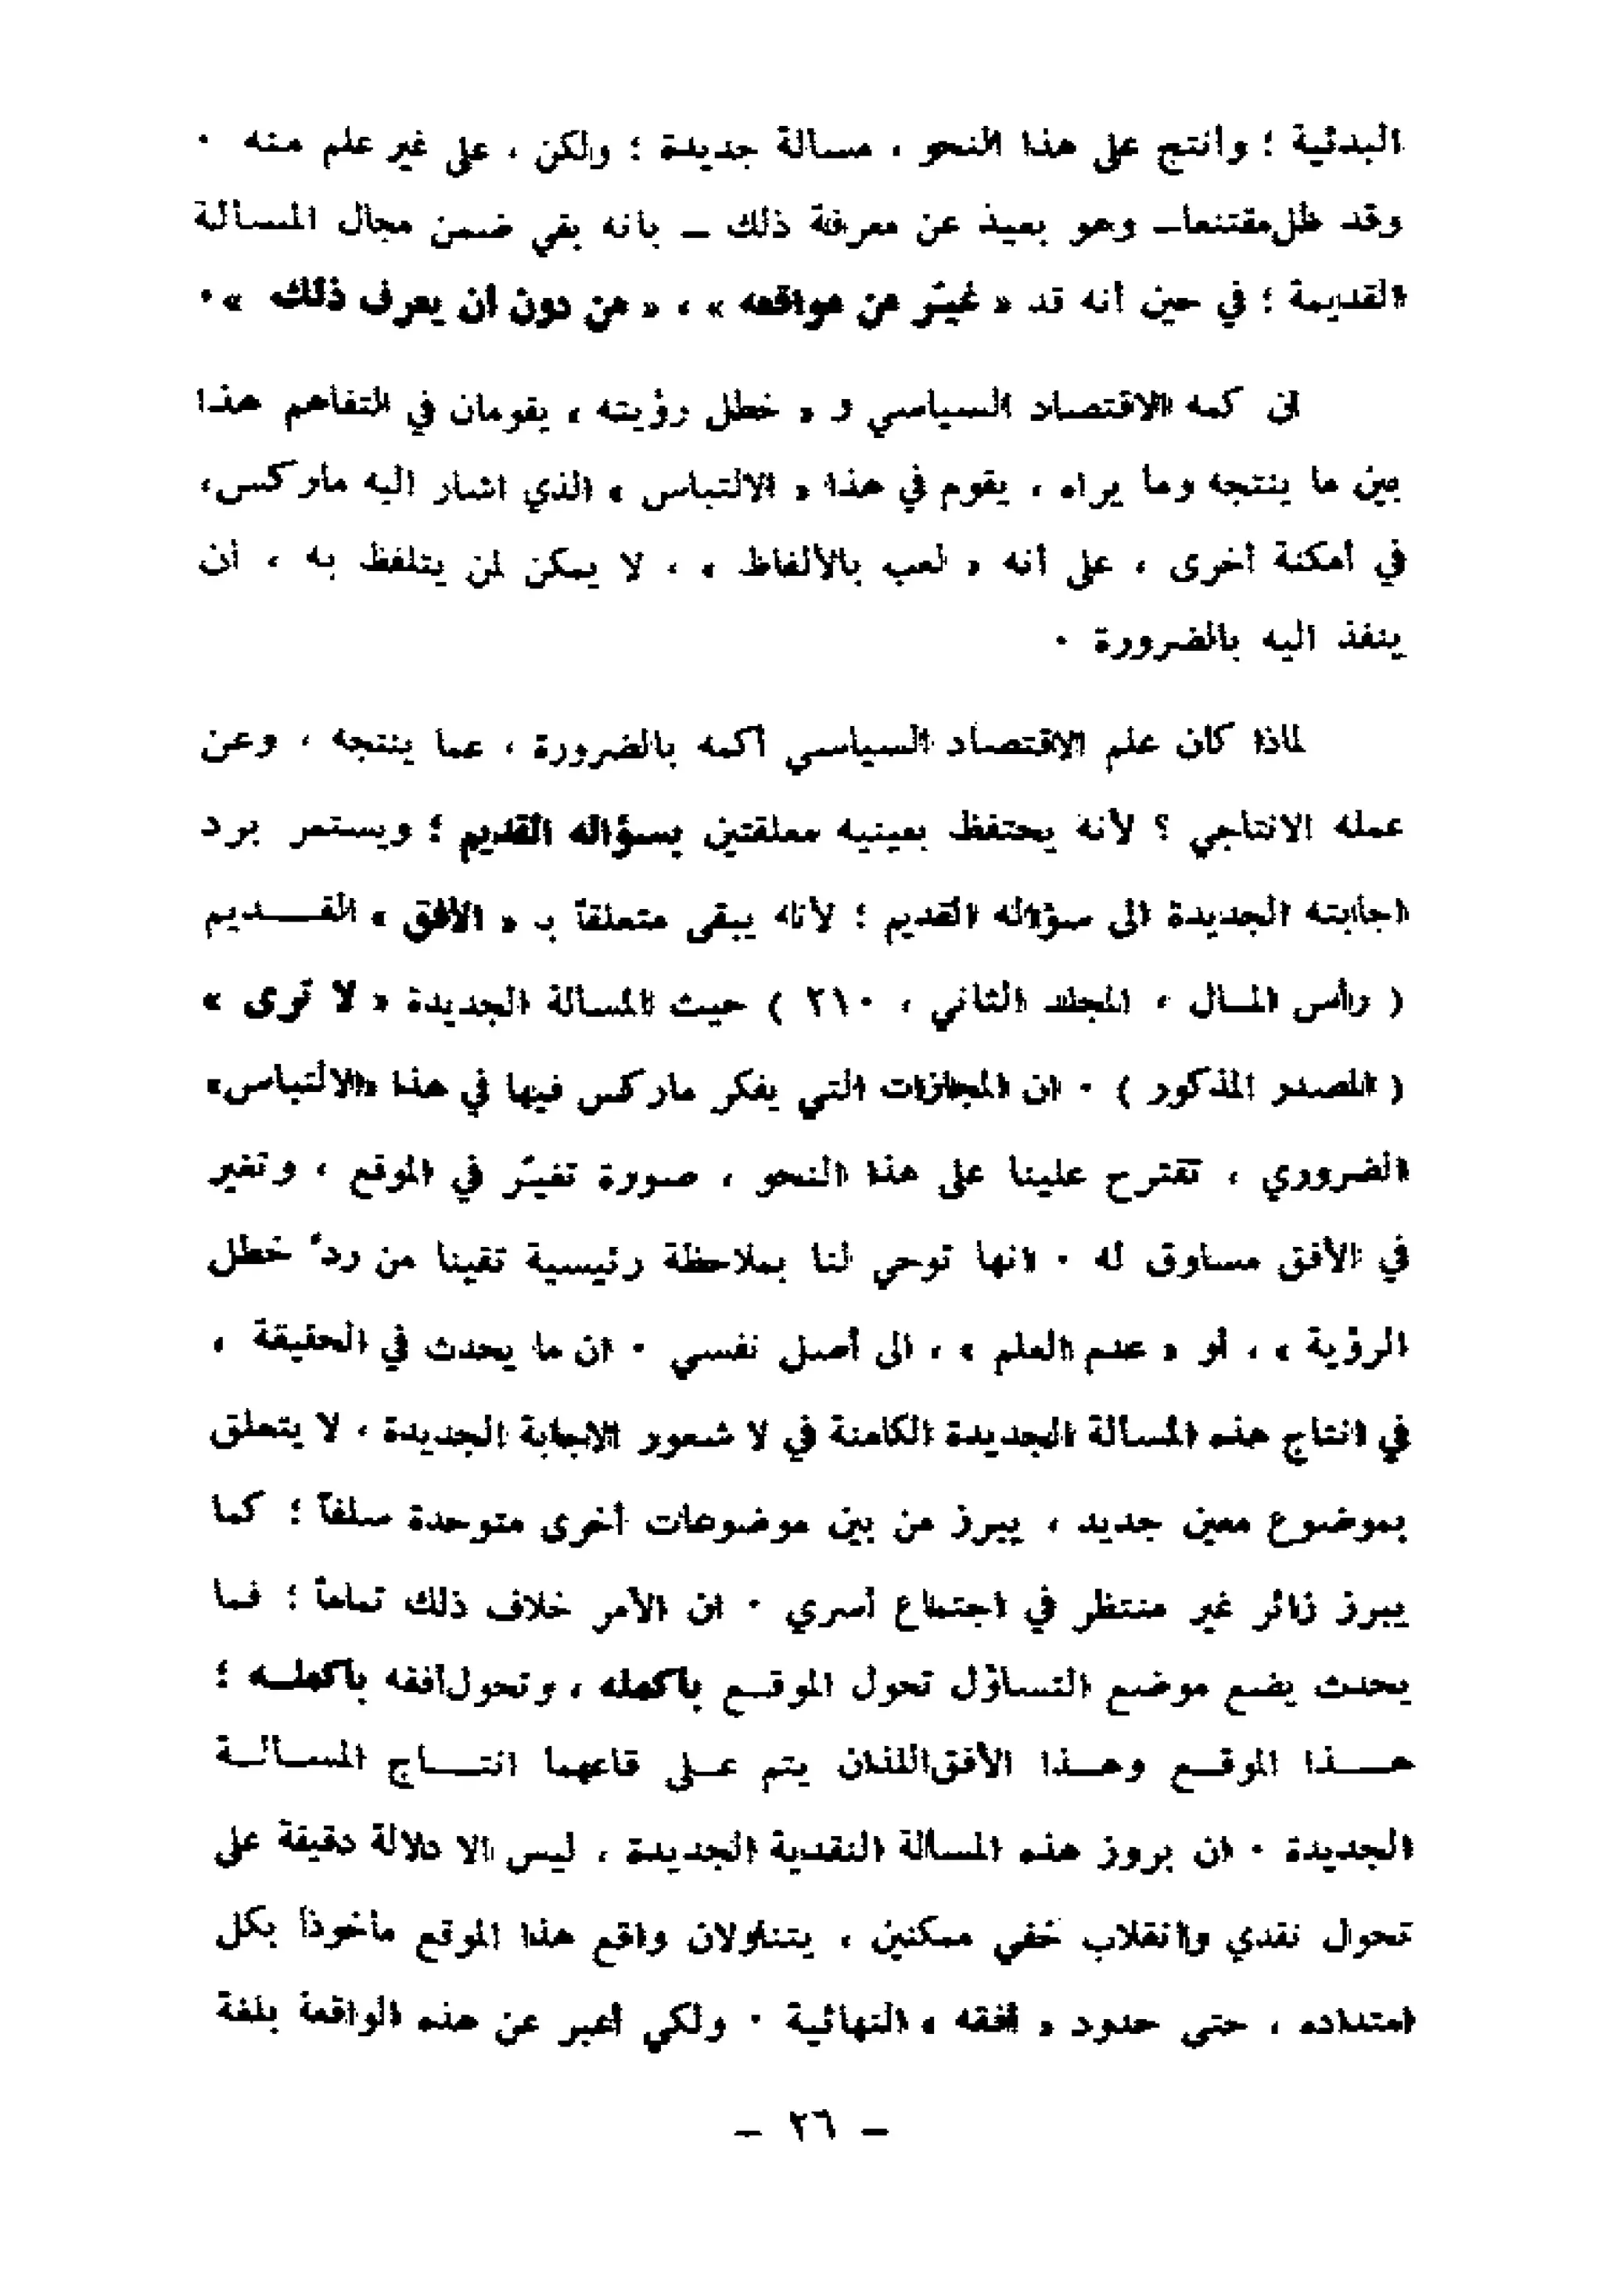 البدئية ؛ وانتج على هذا النحو ، مسالة جديدة ؛ ولكن ، على غير علم منه ٠
وقد ظل مقتنعا ــ وهو بعيد عن معرفة ذلك ــ بانه بقي ضمن مجال المسالة
القديمة ؛ في حين أنه قد « غيّر من مواقعه » ، « من دون ان يعرف ذلك » ٠
ان كمه الاقتصاد السياسي و « خطل رؤيته ، يقومان في التفاهم هذا
بين ما ينتجه وما يراه ، يقوم في هذا « الالتباس » الذي اشار اليه ماركس،
في أمكنة أخرى ، على أنه « لعب بالألفاظ » ، لا يمكن لمن يتلفظ به ، أن
ينفذ اليه بالضرورة ٠
لماذا كان علم الاقتصاد السياسي أكمه بالضرورة ، عما ينتجه ، وعن
عمله الانتاجي ؟ لأنه يحتفظ بعينيه معلقتين بسؤاله القديم ؛ ويستمر برد
اجابته الجديدة الى سؤاله القديم ؛ لأنه يبقى متعلقاً بـ « الأفق » القــديم
( رأس المال ، المجلد الثاني ، ٢١٠ ) حيث المسالة الجديدة « لا تُرى »
( المصدر المذكور ) ٠ ان المجازات التي يفكر ماركس فيها في هذا «الالتباس»
الضروري ، تقترح علينا على هذا النحو ، صورة تغيّر في الموقع ، وتغير
في الأفق مساوق له ٠ انها توحي لنا بملاحظة رئيسية تقينا من ردّ خطل
الرؤية » ، أو « عدم العلم » ، الى أصل نفسي ٠ ان ما يحدث في الحقيقة ،
في انتاج هذه المسألة الجديدة الكامنة في لا شعور الاجابة الجديدة ، لا يتعلق
بموضوع معين جديد ، يبرز من بين موضوعات أخرى متوحدة سلفاً ؛ كما
يبرز زائر غير منتظر في اجتماع أسري ٠ ان الأمر خلاف ذلك تماماً ؛ فما
يحدث يضع موضع التساؤل تحول الموقع بأكمله ، وتحول أفقه بأكمله ؛
هــذا الموقع وهــذا الأفق اللذان يتم على قاعهما انتــاج المسالــة
الجديدة ٠ ان بروز هذه المسألة النقدية الجديدة ، ليس الا دلالة دقيقة على
تحول نقدي وانقلاب خفي ممكنين ، يتناولان واقع هذا الموقع ماخوذا بكل
امتداده ، حتى حدود « أفقه » النهائية ٠ ولكي أعبر عن هذه الواقعة بلغة
ــ ٢٦ ــ